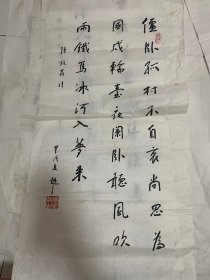 僵卧孤村不自哀尚思为
国戍轮台夜阑卧听风吹
雨铁马冰河入梦来